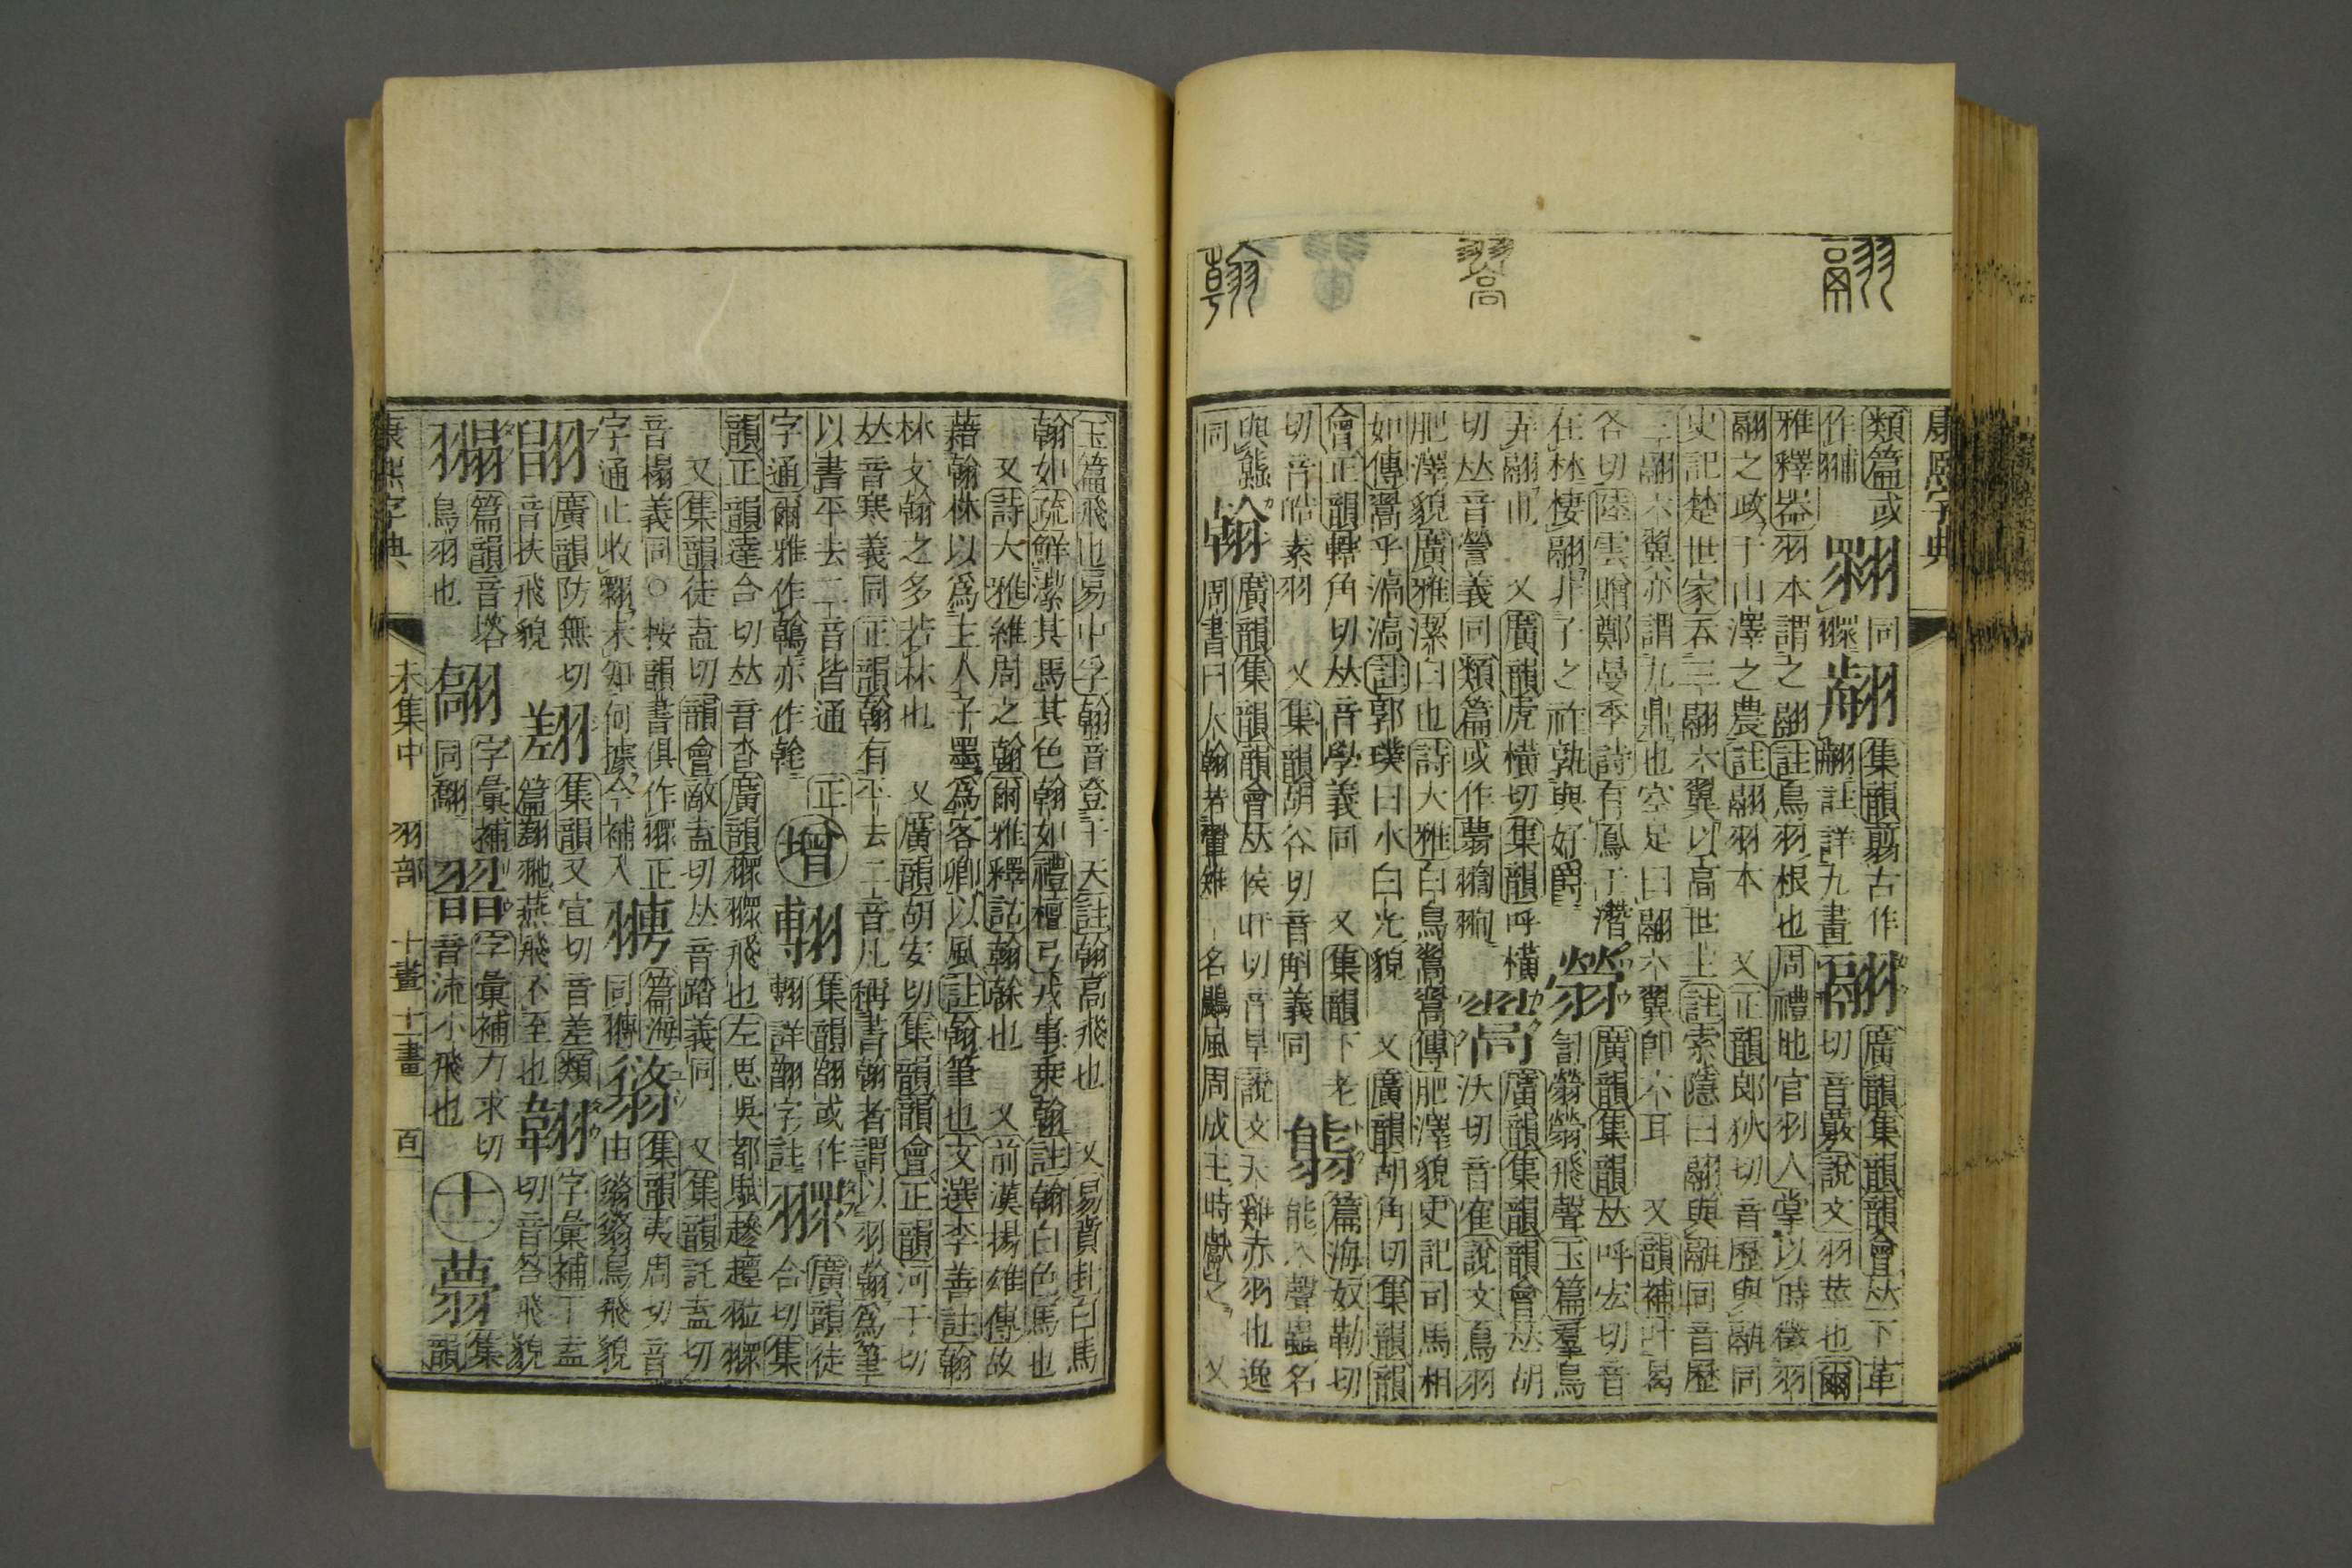 翮
翯
翰
康熙字典
類篇或 同 集韻翦古作 翮 廣韻集韻韻會𠀤下革
註詳九畫 切音覈說文羽莖也爾
雅釋器羽本謂之翮註鳥羽根也 周禮地官羽人掌以時徵羽
翮之政于山澤之農註翮羽本 又正韻郎狄切音歷與䰛同
史記楚世家吞三翮六翼以高世主註索隱曰翮與䰛同音歷
三翮六翼亦謂九鼎也空足曰翮六翼卽六耳 又韻補叶曷
各切陸雲贈鄭曼季詩有鳳于潛 廣韻集韻𠀤呼宏切音
在林棲翮非子之祚孰與好爵 訇 飛聲玉篇羣鳥
弄翮也 又廣韻虎橫切集韻呼橫 翯 廣韻集韻韻會𠀤胡
切𠀤音 義同類篇或作 沃切音 說文鳥羽
肥澤貌廣雅潔白也詩大雅白鳥翯翯傳肥澤貌史記司馬相
如傳翯乎滈滈註郭璞曰水白光貌 又廣韻胡角切集韻韻
會正韻轄角切𠀤音學義同 又集韻下老 篇海奴勒切
切音皓素羽 又集韻胡谷切音斛義同 能入聲蟲名
與 翰 廣韻集韻韻會𠀤侯旰切音旱說文天雞赤羽也逸
同 周書曰大翰若翬雉一名鷐風周成王時獻之 又
玉篇飛也易中孚翰音登于天註翰高飛也 又易賁卦白馬
翰如疏鮮潔其馬其色翰如禮檀弓戎事乗翰註翰白色馬也
又詩大雅維周之翰爾雅釋詁翰榦也 又前漢揚雄傳故
藉翰林以爲主人子墨爲客卿以風註翰筆也文選李善註翰
林文翰之多若林也 又廣韻胡安切集韻韻會正韻河干切
𠀤音寒義同正韻翰有平去二音凡稱書翰者謂以羽翰爲筆
以書平去二音皆通 集韻翮或作 廣韻徒
字通爾雅作鶾亦作雗 正 增 詳翮字註 合切集
韻正韻達合切𠀤音沓廣韻 飛也左思吳都賦趁趲翋䎓
又集韻徒盍切韻會敵盍切𠀤音踏義同 又集韻託盍切
音榻義同○按韻書俱作䎓正 篇海 集韻夷周切音
字通止收 未知何據今補入 同 翁 由 鳥飛貌
廣韻防無切 集韻叉宜切音差類 字彙補丁盍
音扶飛貌 篇 燕飛不至也 切音答飛貌
篇韻音塔 字彙補 字彙補力求切 十一 集
鳥羽也 同 音流小飛也 韻
康熙字典 未集中 羽部 十畫 十一畫 百一